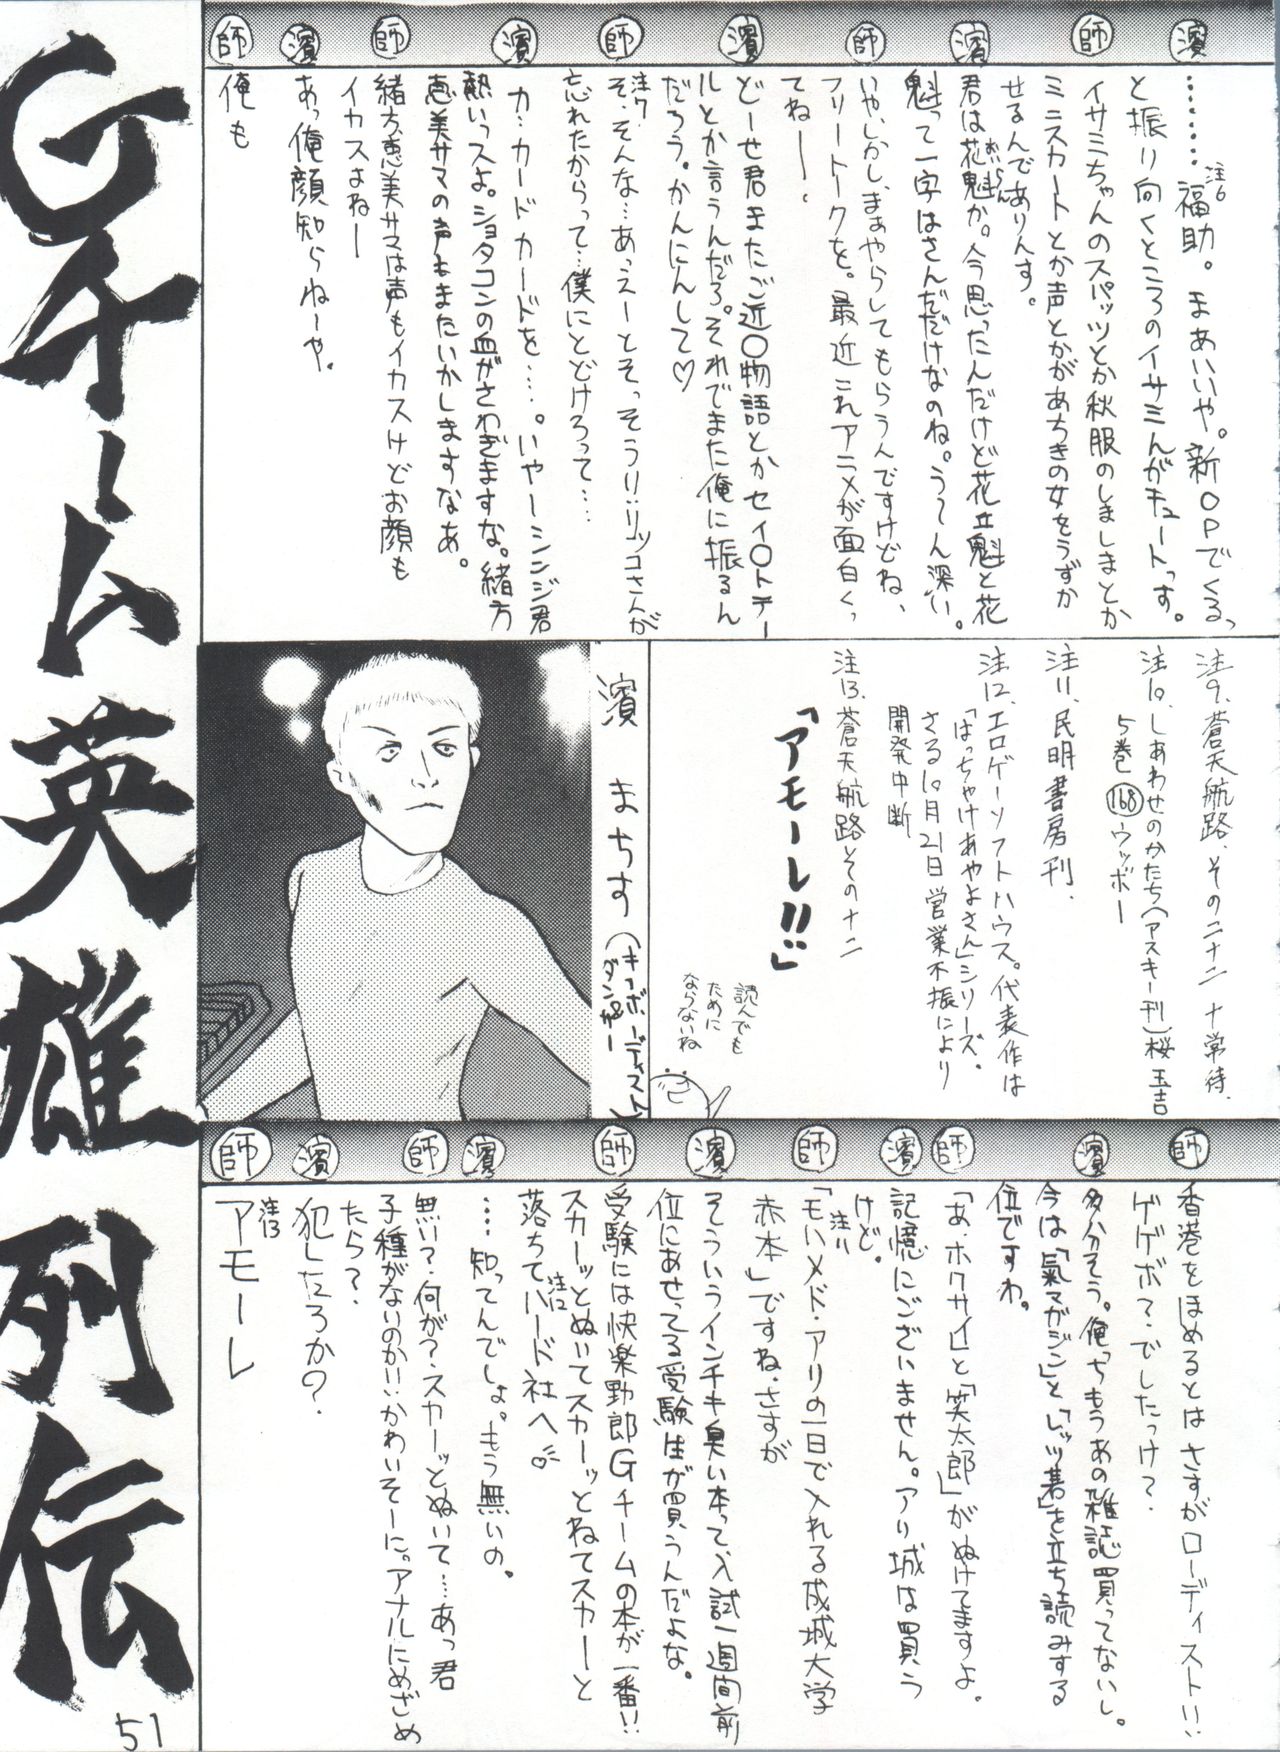 濱
………福助。まあいいや。新OPでくるっ
注6
と振り向くところのイサミんがキュートっす。
師
イサミちゃんのスパッツとか秋服のしましまとか
ミニスカートとか声とかがあちきの女をうずか
せるんでありんす。
濱
君は花魁か。今思ったんだけど花立魁と花
おいらん
魁って一字はさんだだけなのね。うーん深い。
師
いや、しかし、まぁやらしてもらうんですけどね、
フリートークを。最近これアニメが面白くっ
てねー。
濱
どーせ君またご近〇物語とかセイ〇トテー
ルとか言うんだろ。それでまた俺に振るん
だろう。かんにんして♡
師
注7
そ、そんな…あっえーとそっそうリ‥リッコさんが
忘れたからって…僕にとどけろって…
濱
カ…カードカードを…。いやーシンジ君
熱いっスよ。ショタコンの血がさわぎますな。緒方
恵美サマの声もまたいかしますなあ。
師
緒方恵美サマは声もイカスけどお顔も
イカスよねー
濱
あっ俺顔知らねーや。
師
俺も
注9、蒼天航路、その二十二 十常侍、
注10、しあわせのかたち(アスキー刊)桜玉吉
5巻 168 ウッボー
注11、民明書房刊、
注12、エロゲーソフトハウス。代表作は
「はっちゃけあやよさん」シリーズ、
さる10月21日営業不振により
開発中断
注13、蒼天航路その十二
「アモーレ!!」
読んでも
ために
ならないね
濱 まちす(キーボーディスト)
ダンサー
師
香港をほめるとはさすがローディスト!!
ゲゲボ?でしたっけ?
濱
多分そう。俺っちもうあの雑誌買ってないし。
今は「氣マガジン」と「レッツ碁」を立ち読みする
位ですわ。
師
「あ、ホクサイ」と「笑太郎」がぬけてますよ。
濱
記憶にございません。アリ城は買う
けど。
師
注11
「モハメド・アリの一日で入れる成城大学
赤本」ですね、さすが
濱
そういうインチキ臭い本って、入試一週間前
位にあせってる受験生が買うんだよな。
師
受験には快楽野郎Gチームの本が一番!!
スカーッとぬいてスカーッとねてスカーと
注12
落ちてハード社へ♡
濱
…知ってんでしょ。もう無いの。
師
無い?何が?スカーッとぬいて…あっ君
子種がないのか!!かわいそーに。アナルにめざめ
たら?
濱
犯したろか?
師
注13
アモーレ
Gチーム英雄列伝
51